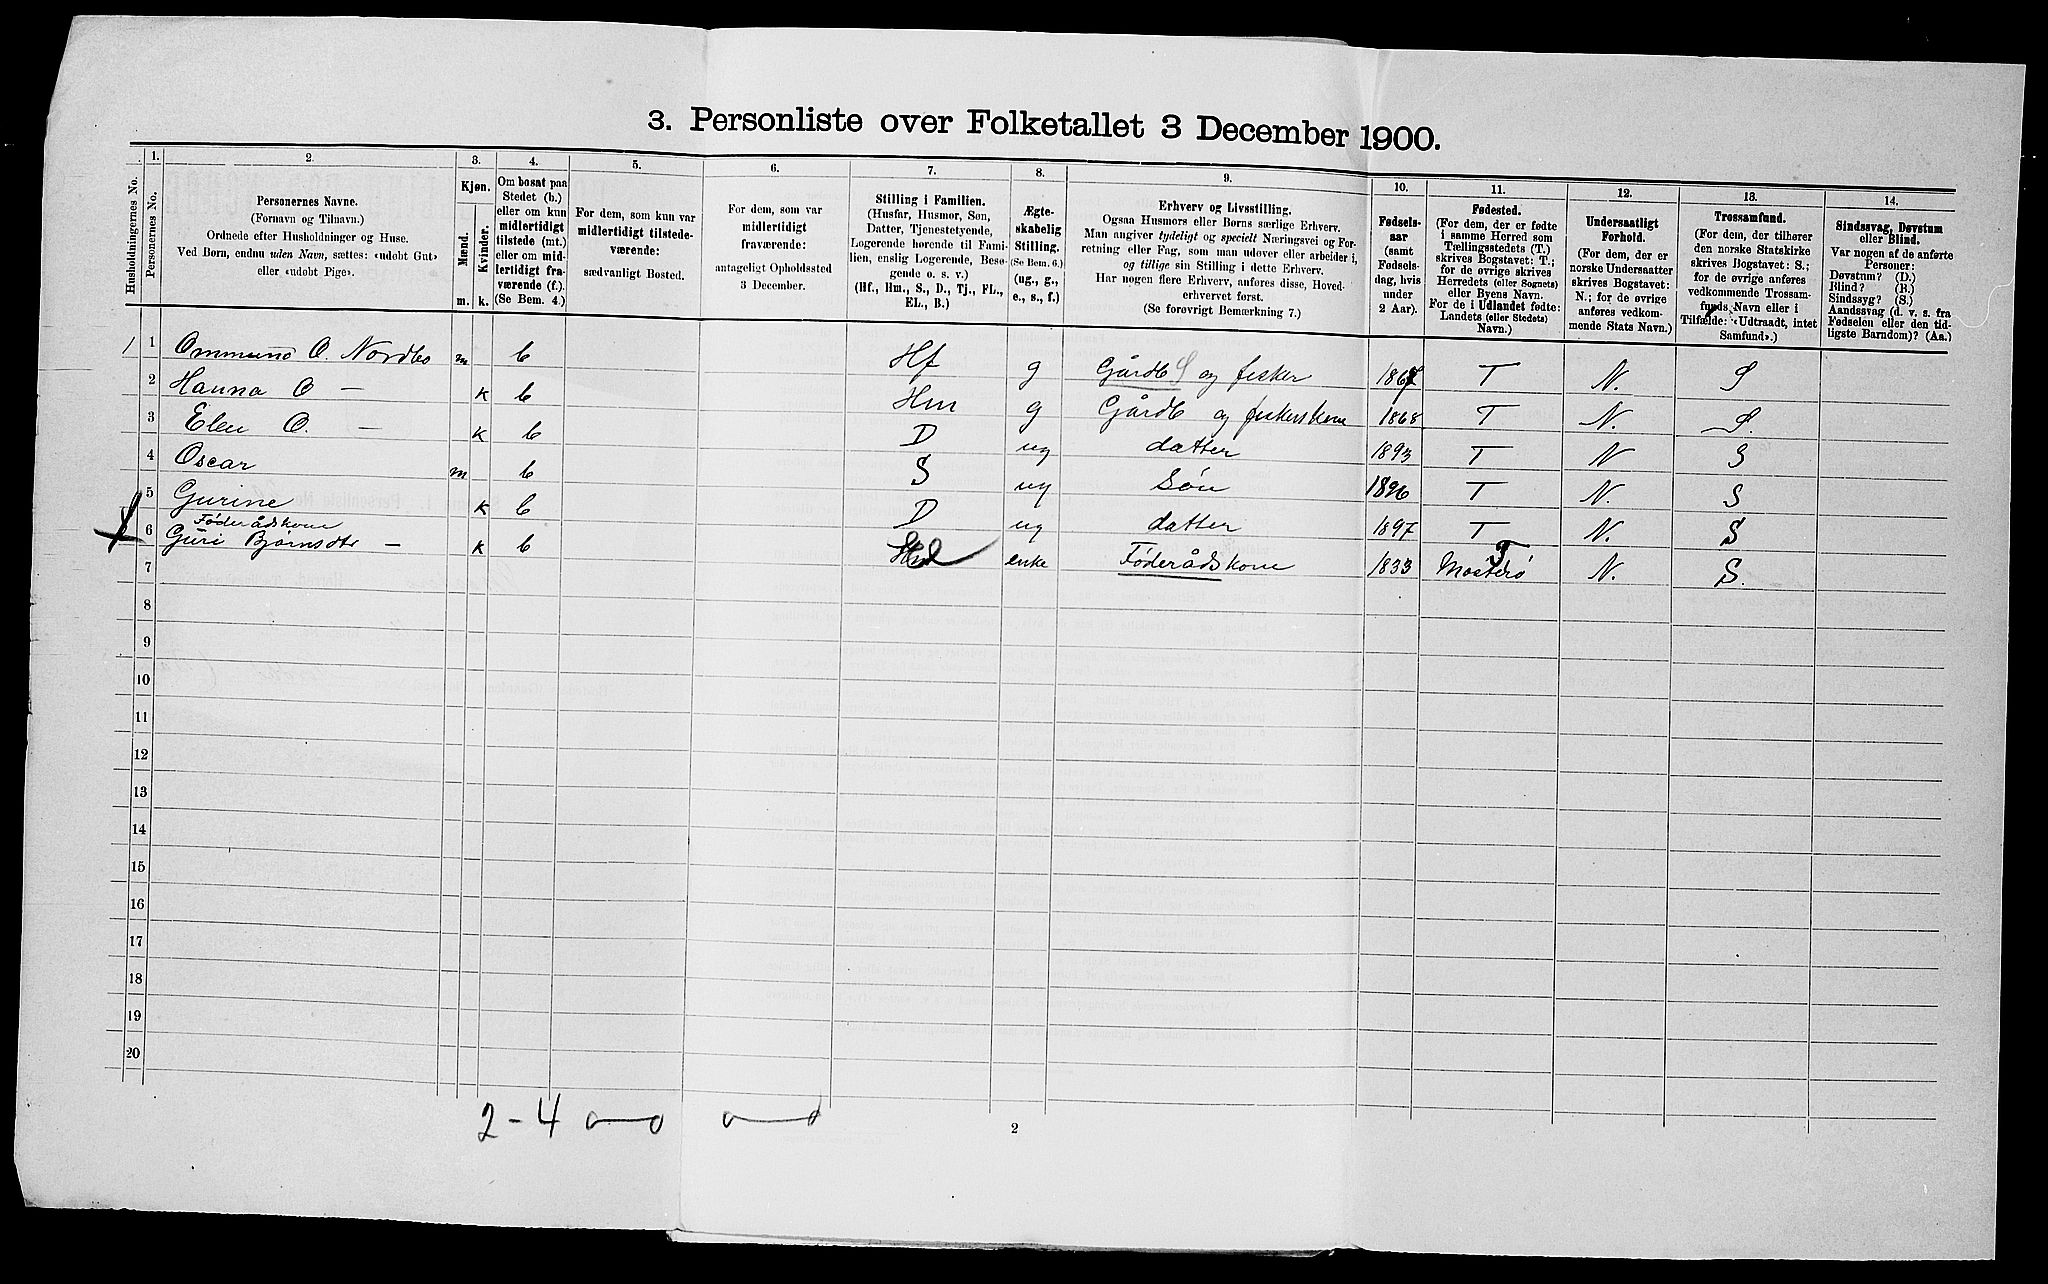 3. Personliste over Folketallet 3 December 1900.
Husholdningernes No.
1. Personernes No.
2. Personernes Navne.
(Fornavn og Tilnavn.)
Ordnede efter Husholdninger og Huse.
Ved Børn, endnu uden Navn, sættes: «udøbt Gut»
eller «udøbt Pige».
3. Kjøn.
Mænd. Kvinder.
m. k.
4. Om bosat paa
Stedet (b.)
eller om kun
midlertidigt
tilstede (mt.)
eller om mid-
lertidigt fra-
værende (f.).
(Se Bem. 4.)
5. For dem, som kun var
midlertidigt tilstede-
værende:
sædvanligt Bosted.
6. For dem, som var
midlertidigt
fraværende:
antageligt Opholdssted
3 December.
7. Stilling i Familien.
(Husfar, Husmor, Søn,
Datter, Tjenestetyende,
Logerende hørende til Fami-
lien, enslig Logerende, Besø-
gende o. s. v.)
(Hf., Hm., S., D., Tj., FL.,
EL., B.)
8. Ægte-
skabelig
Stilling.
(Se Bem. 6.)
(ug., g.,
e., s., f.)
9. Erhverv og Livsstilling.
Ogsaa Husmors eller Børns særlige Erhverv.
Man angiver tydeligt og specielt Næringsvei og For-
retning eller Fag, som man udøver eller arbeider i,
og tillige sin Stilling i dette Erhverv.
Har nogen flere Erhverv, anføres disse, Hoved-
erhvervet først.
(Se forøvrigt Bemærkning 7.)
10. Fødsels-
aar
(samt
Fødsels-
dag, hvis
under
2 Aar).
11. Fødested.
(For dem, der er fødte
i samme Herred som
Tællingsstedets (T.)
skrives Bogstavet: T.;
for de øvrige skrives
Herredets (eller Sognets)
eller Byens Navn.
For de i Udlandet fødte:
Landets (eller Stedets)
Navn.)
12. Undersaatligt
Forhold.
(For dem, der er
norske Undersaatter
skrives Bogstavet:
N.; for de øvrige
anføres vedkom-
mende Stats Navn.)
13. Trossamfund.
(For dem, der tilhører
den norske Statskirke
skrives Bogstavet: S.;
for de øvrige anføres
vedkommende Trossam-
funds Navn eller i
Tilfælde: «Udtraadt, intet
Samfund».)
14. Sindssvag, Døvstum
eller Blind.
Var nogen af de anførte
Personer:
Døvstum? (D.)
Blind? (B.)
Sindssyg? (S.)
Aandssvag (d. v. s. fra
Fødselen eller den tid-
ligste Barndom)? (Aa.)
1 1 Ommund O. Nordbø m b Hf g Gårdb S og fisker 1867 T N. S
2 Hanna O — k b Hm g Gårdb og fiskerskone 1868 T N. S.
3 Elen O. — k b D ug datter 1893 T N S
4 Oscar m b S ug Søn 1896 T N. S
5 Gurine k b D ug datter 1897 T N. S
Føderådskone
6 Guri Bjørnsdtr — k b enke Føderådskone 1833 Mosterø T N. S.
7
8
9
10
11
12
13
14
15
16
17
18
19
20
2 - 4 0—0 0—0
2